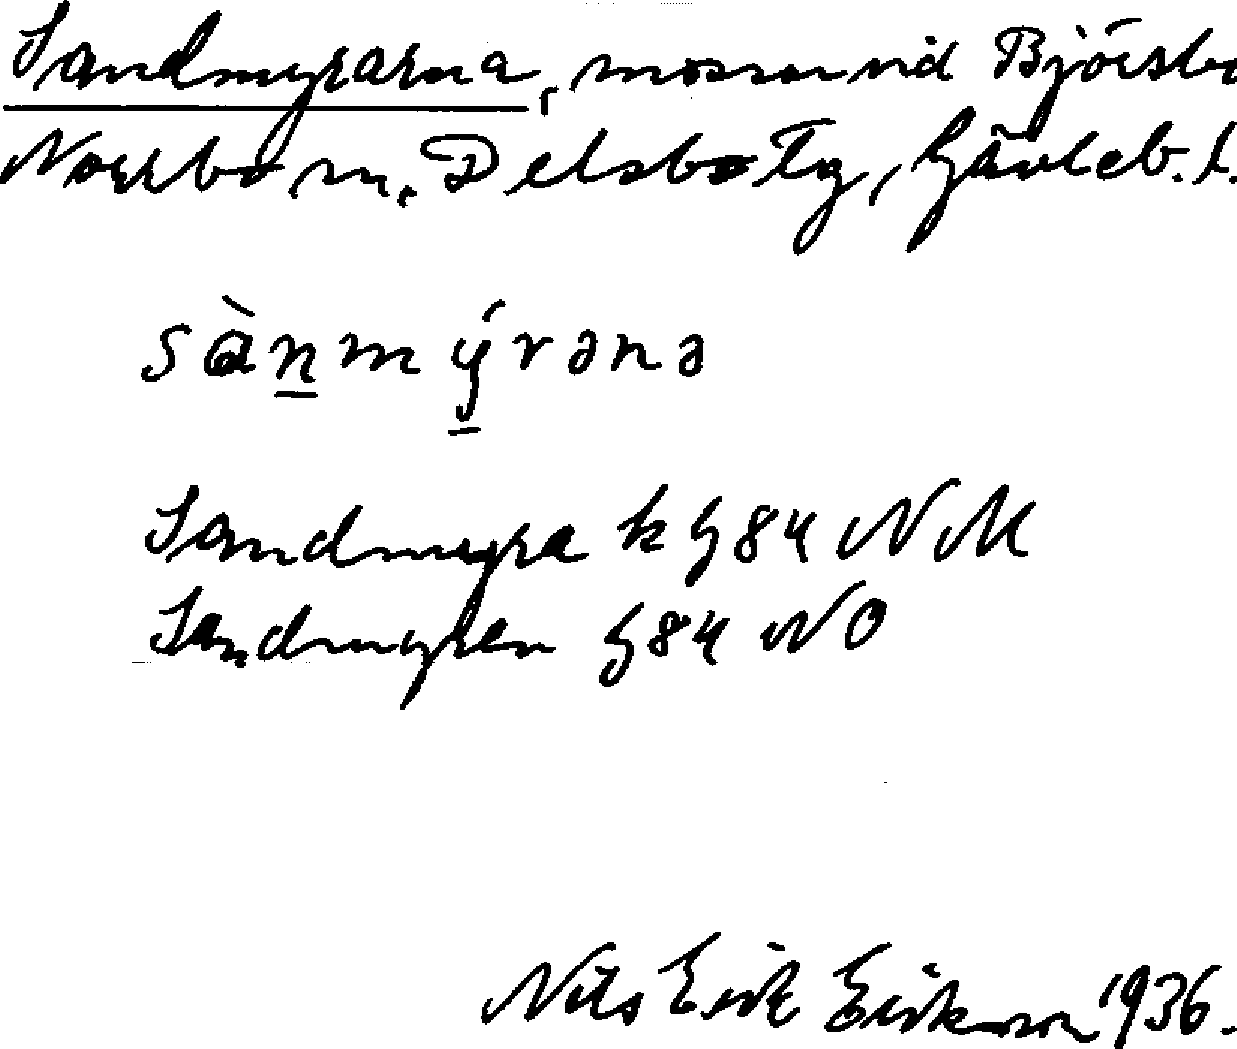 Sandmyrarna, mossar vid Björsbo
Norrbo sn, Delsbo tg, Gävleb. l.
sànmýrəna
Sandmyra k G 84 NM
Sandmyren G 84 NO
Nils Erik Erikson 1936.